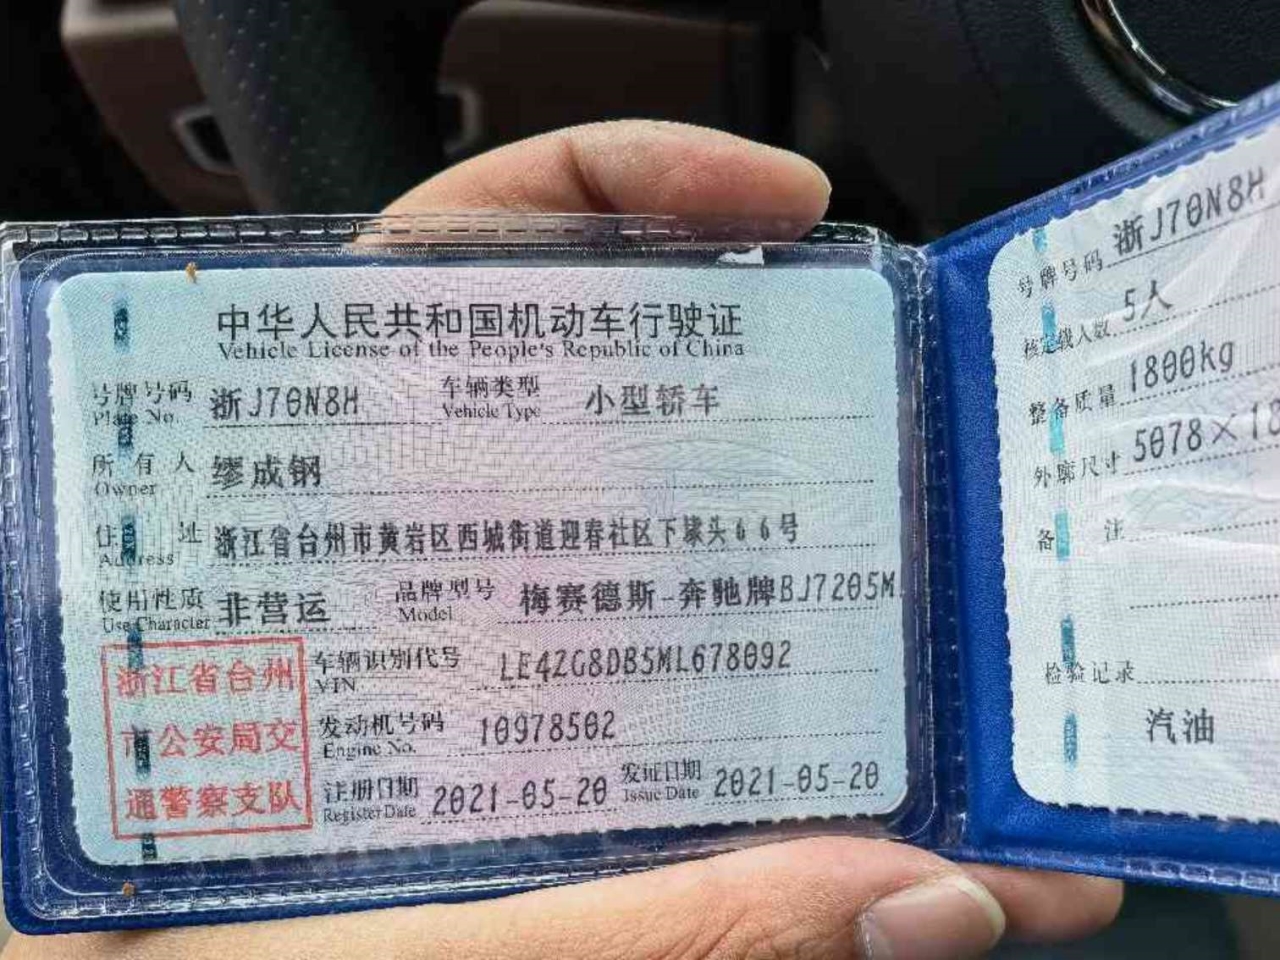 中华人民共和国机动车行驶证
Vehicle License of the People's Republic of China
号牌号码 浙J70N8H 车辆类型 小型轿车
Plate No. Vehicle Type
所有人 缪成钢
Owner
住址 浙江省台州市黄岩区西城街道迎春社区下堘头66号
Address
使用性质 非营运 品牌型号 梅赛德斯-奔驰牌BJ7205M
Use Character Model
浙江省台州
市公安局交
通警察支队
车辆识别代号 LE4ZG8DB5ML678092
VIN
发动机号码 10978502
Engine No.
注册日期 2021-05-20 发证日期 2021-05-20
Register Date Issue Date
号牌号码 浙J70N8H
核定载人数 5人
整备质量 1800kg
外廓尺寸 5078×18
备注
检验记录
汽油